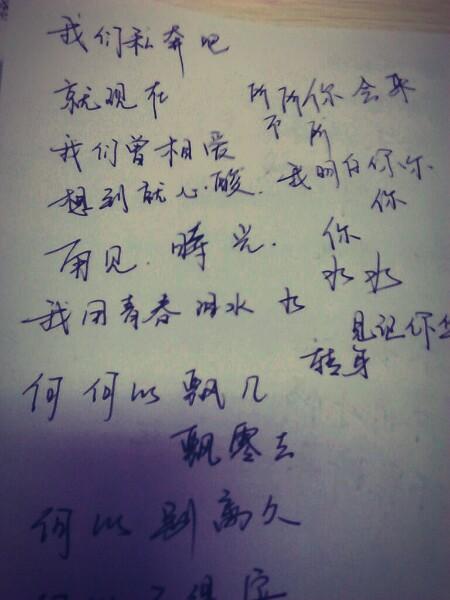 我们私奔吧
就现在 所所你会来
不 所
我们曾相爱
想到就心酸. 我明白你你
你
再见.時光. 你
水 水
我用青春 水 水
见记你
转身
何何以飘几
飘零去
何以别离久